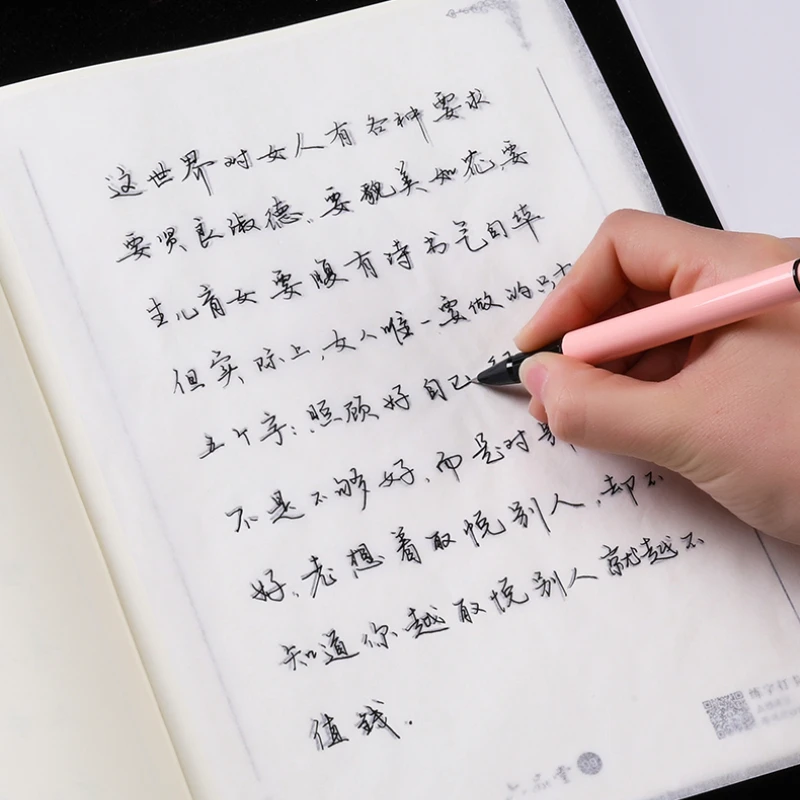 这世界对女人有各种要求
要贤良淑德、要貌美如花、要
生儿育女要腹有诗书气自华
但实际上,女人唯一要做的只
五个字:照顾好自己
不是不够好,而是对
好、老想着取悦别人,却不
知道你越取悦别人就越不
值钱.